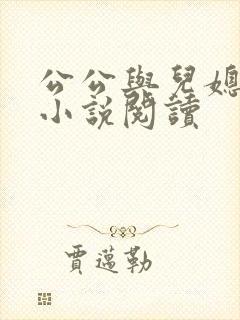 公公與兒媳
小說閱讀
賈邁勒